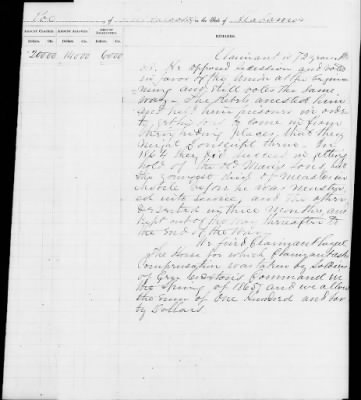 of Tuscaloosa in the State of Alabama
AMOUNT CLAIMED. AMOUNT ALLOWED. AMOUNT DISALLOWED. REMARKS.
Dollars. Cts. Dollars. Cts. Dollars. Cts.
200 00 140 00 60 00 Claimant is 72 years
old. He opposed secession and voted
in favor of the Union at the beginn
ning and still votes the same
way. The Rebels arrested him
and kept him prisoner in order
to get his sons to come in from
their hiding places, that they
might conscript them. In
1864 they did succeed in getting
hold of the two sons, but
the youngest died of Measles in
Mobile before he was muster
ed into service, and the other
deserted in three months and
kept out of the way thereafter to
the End of the War.
We find Claimant loyal.
The Horse for which Claimant asks
Compensation was taken by Soldiers
of Gen Croxton's Command in
the Spring of 1865, and we allow
the sum of One Hundred and For
ty Dollars.